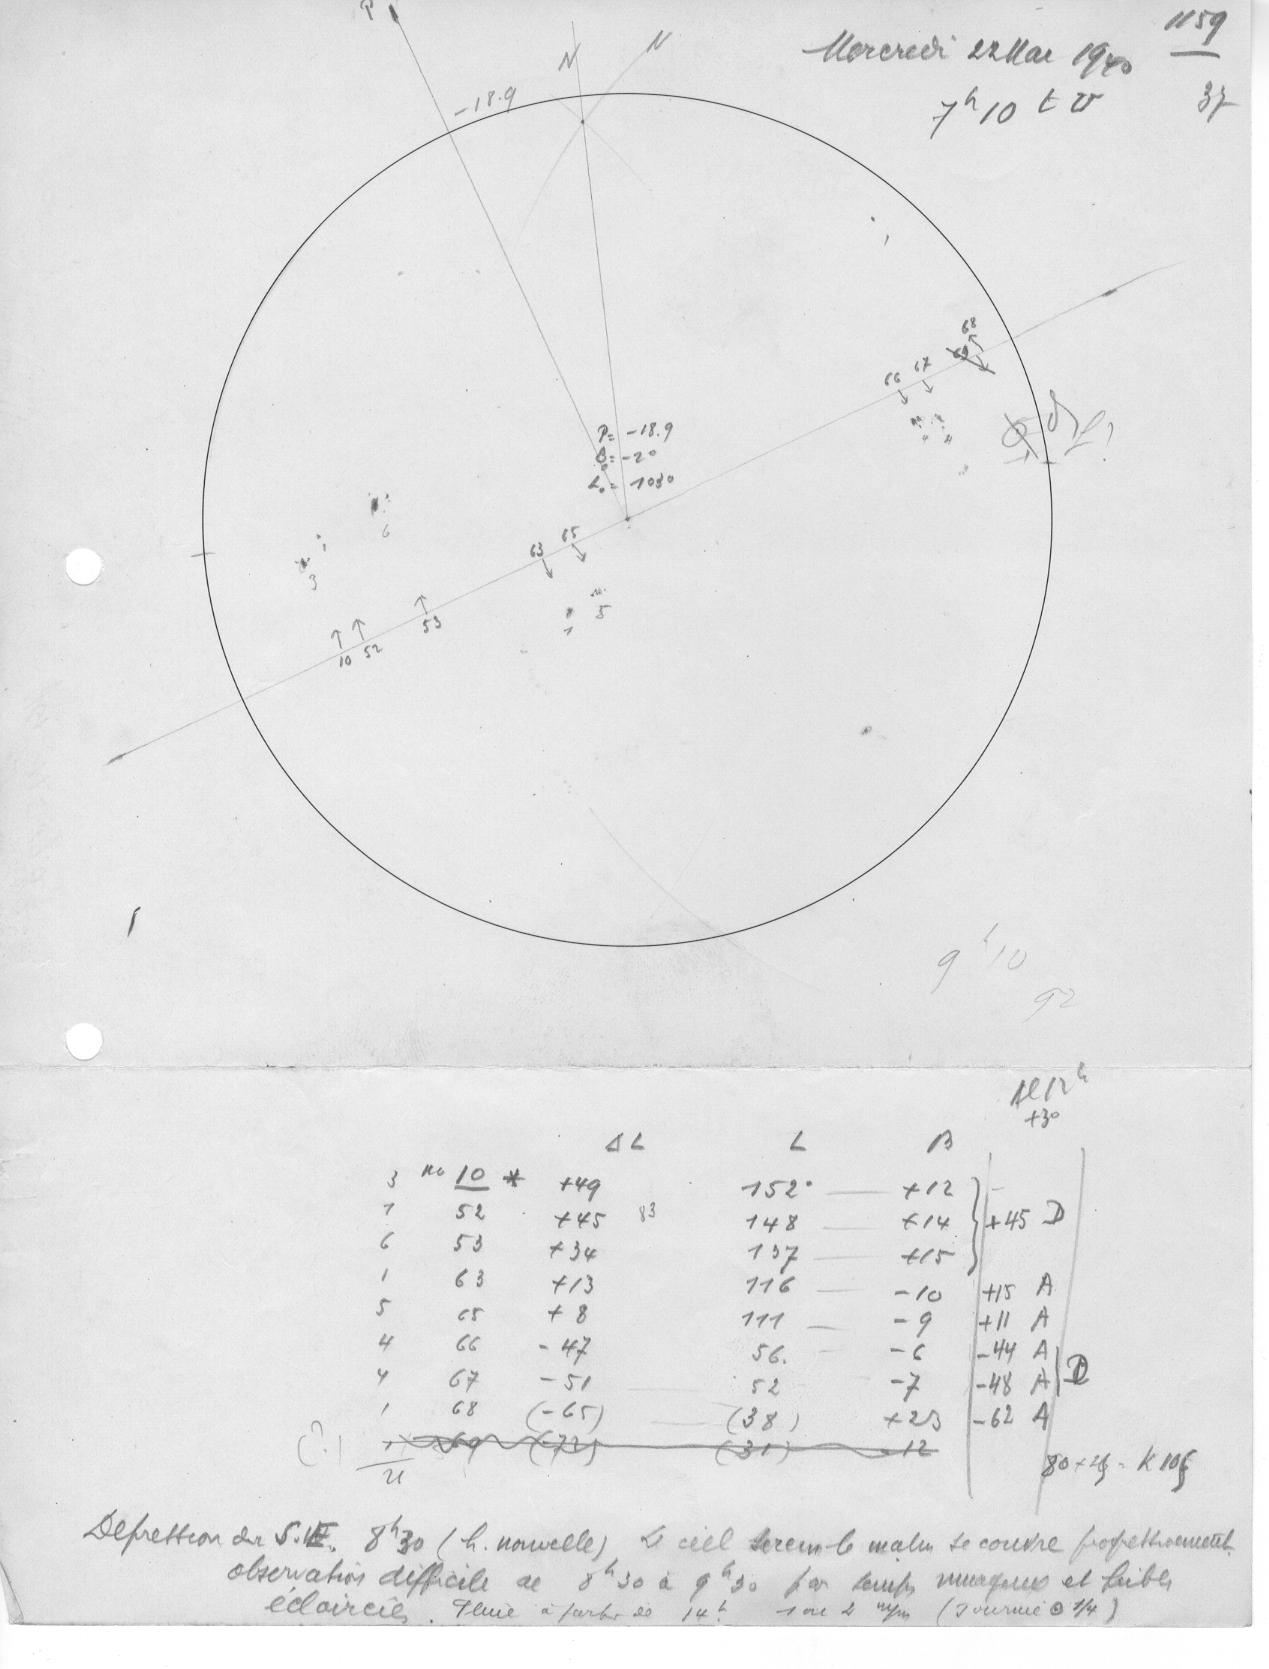 1159
Mercredi 22 Mai 1940
7h10 t U
37
P
N
N
-18.9
P= -18.9
B= -2°
L₀= 103°
68
69
66 67
63 65
6
3
10 52 53
5
1
9h10
92
+3°
ΔL L B
3 no 10 * +49 152° — +12 -
1 52 +45 83 148 — +14 +45 D
6 53 +34 137 — +15
1 63 +13 116 — -10 +15 A
5 65 +8 111 — -9 +11 A
4 66 -47 56. -6 -44 A
4 67 -51 52 -7 -48 A D
1 68 (-65) (38) +23 -62 A
(?) 1 69 (-72) (31) -12
80+25 = K 105
Dépression du S.E. 8h30 (h. nouvelle) Le ciel serein le matin se couvre progressivement
observation difficile de 8h30 à 9h30 par temps nuageux et faibles
éclaircies. Pluie à partir de 14h. 1 ou 2 (Journée ⊙ 1/4)